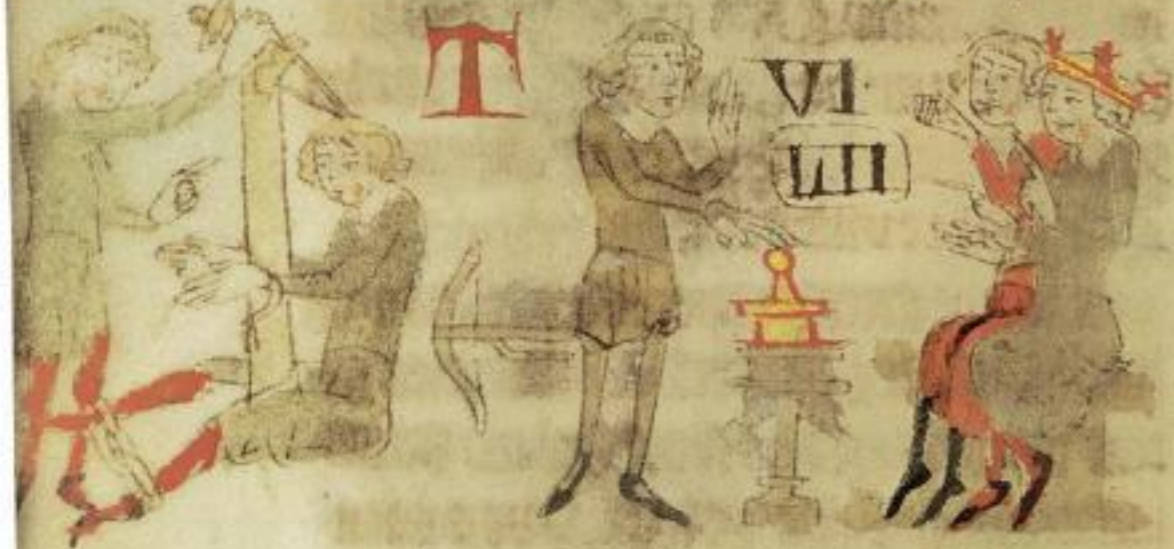 T
VI
LIII